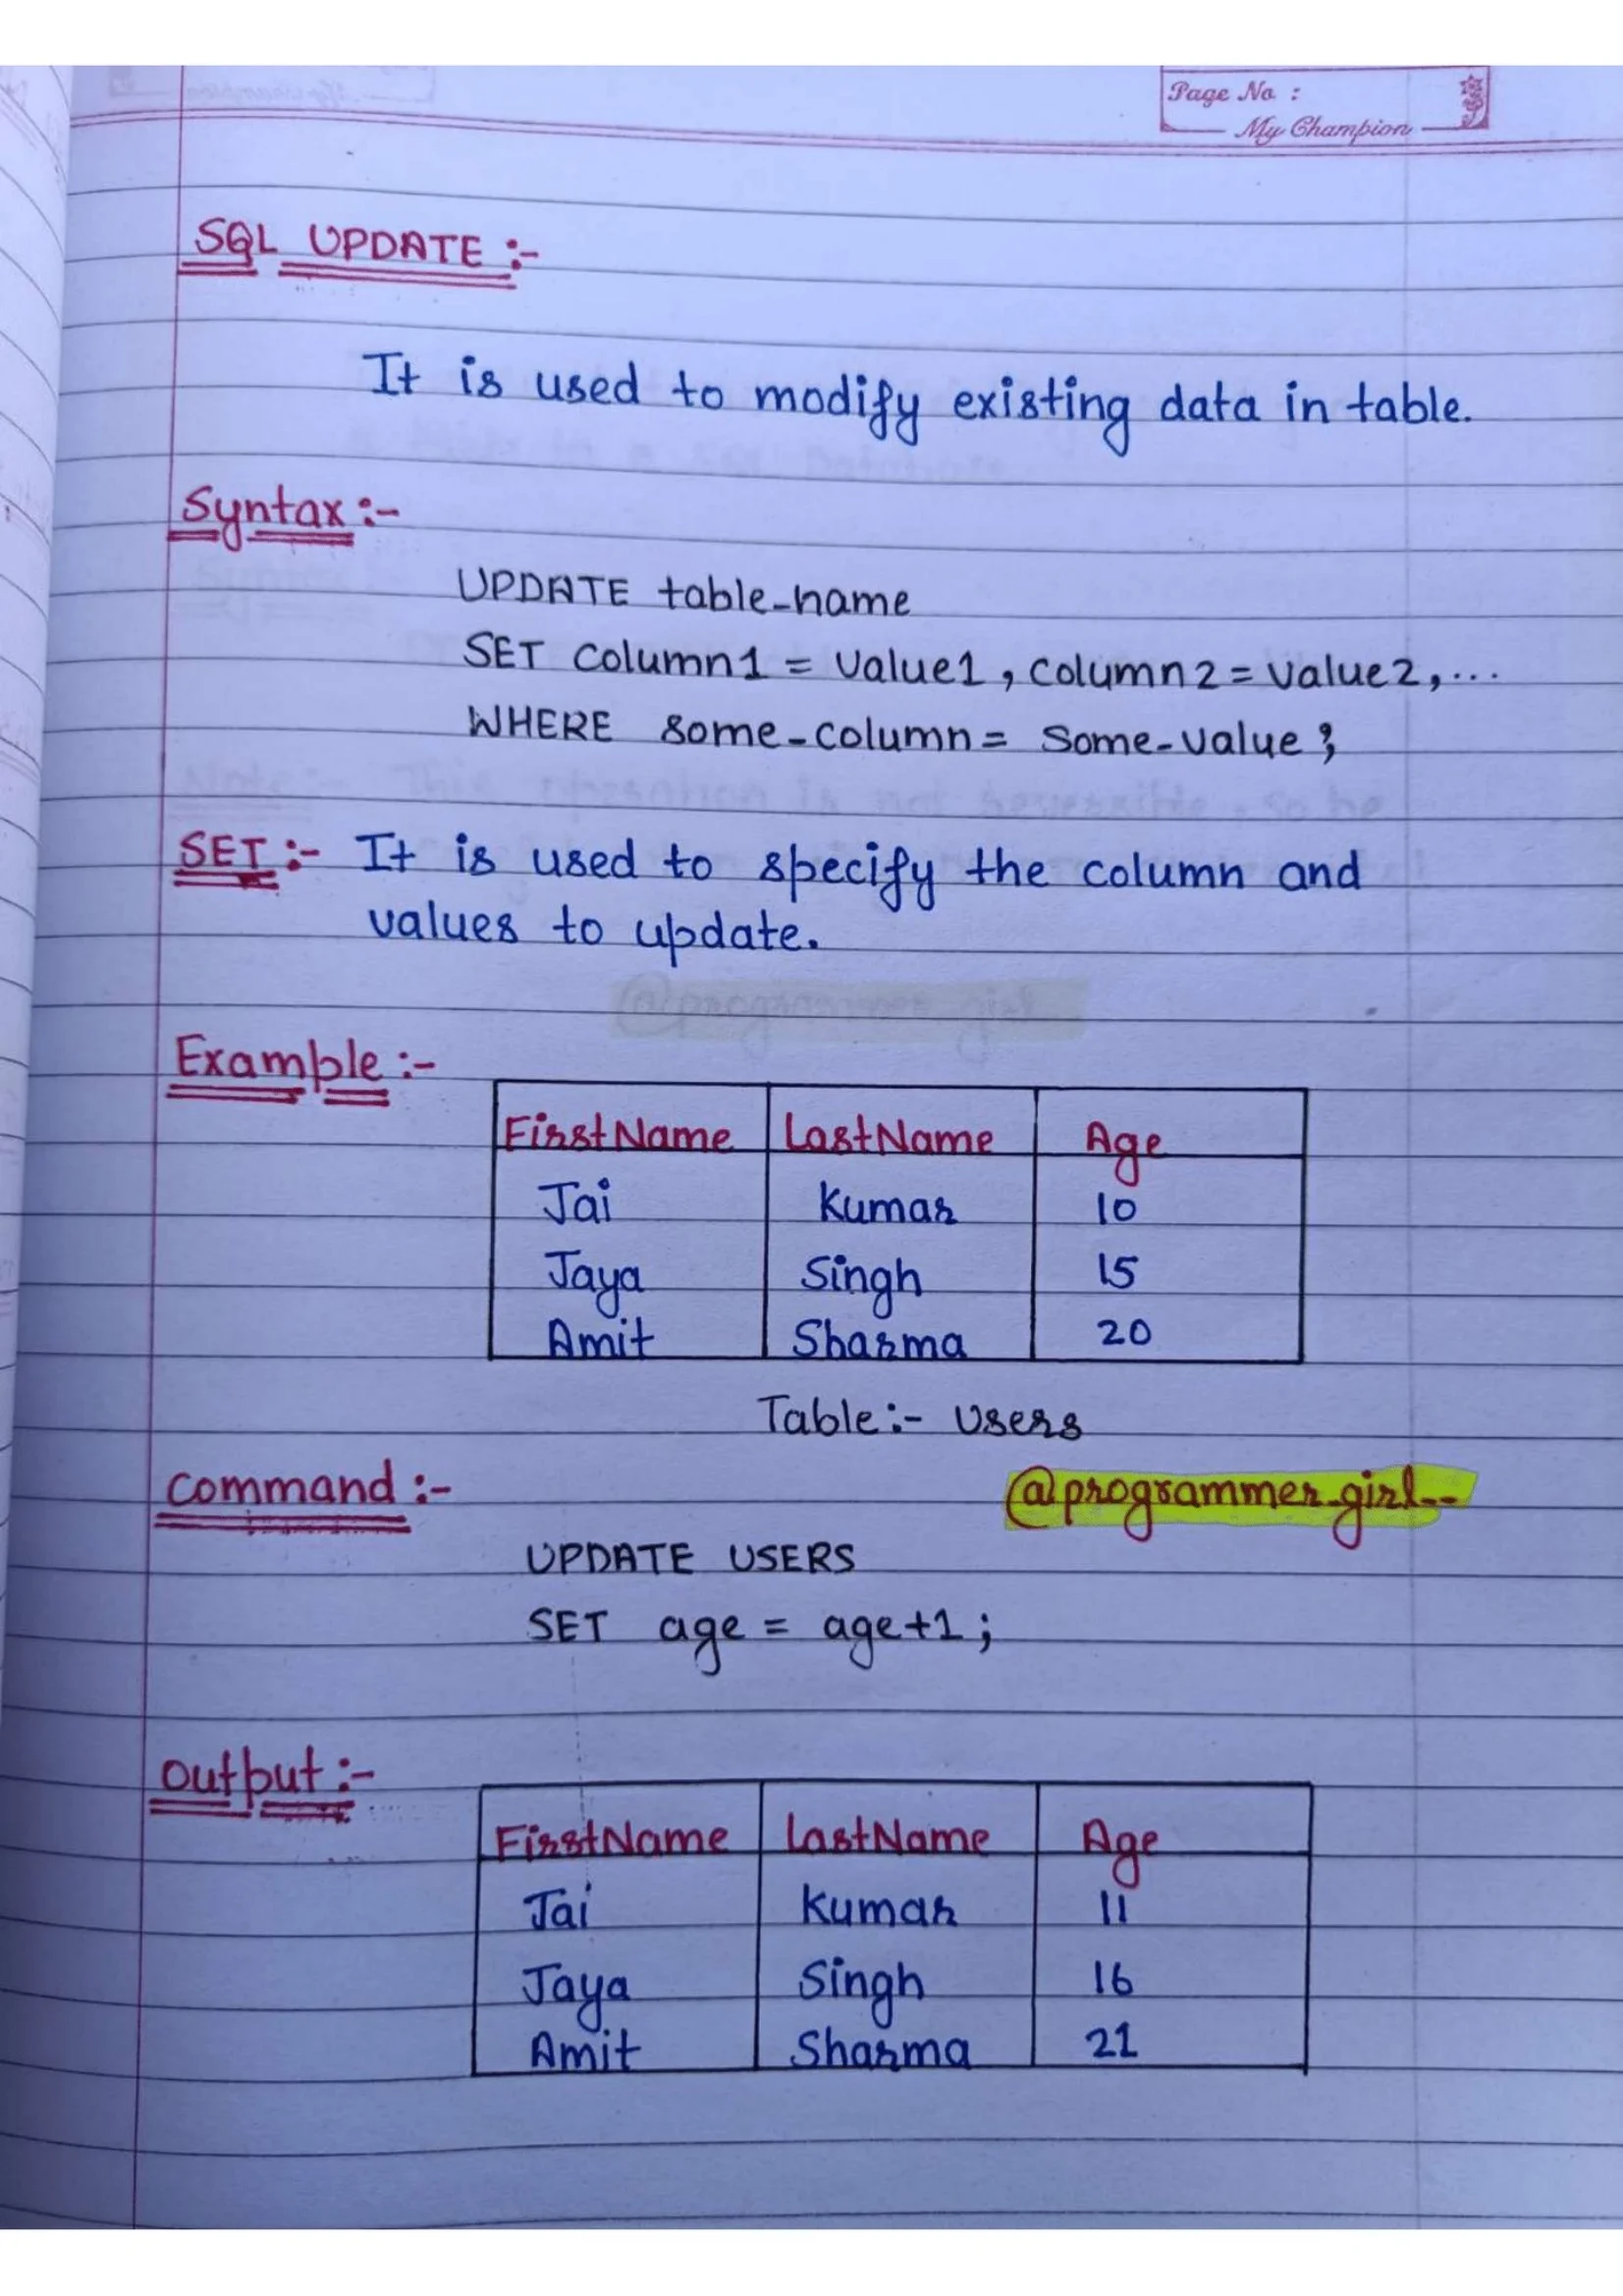 Page No. :
My Champion
SQL UPDATE :-
It is used to modify existing data in table.
Syntax :-
UPDATE table_name
SET column1 = value1, column2 = value2, ...
WHERE some_column = some_value ;
SET :- It is used to specify the column and
values to update.
Example :-
FirstName LastName Age
Jai Kumar 10
Jaya Singh 15
Amit Sharma 20
Table :- Users
command :-
@programmer_girl__
UPDATE USERS
SET age = age+1 ;
output :-
FirstName LastName Age
Jai Kumar 11
Jaya Singh 16
Amit Sharma 21